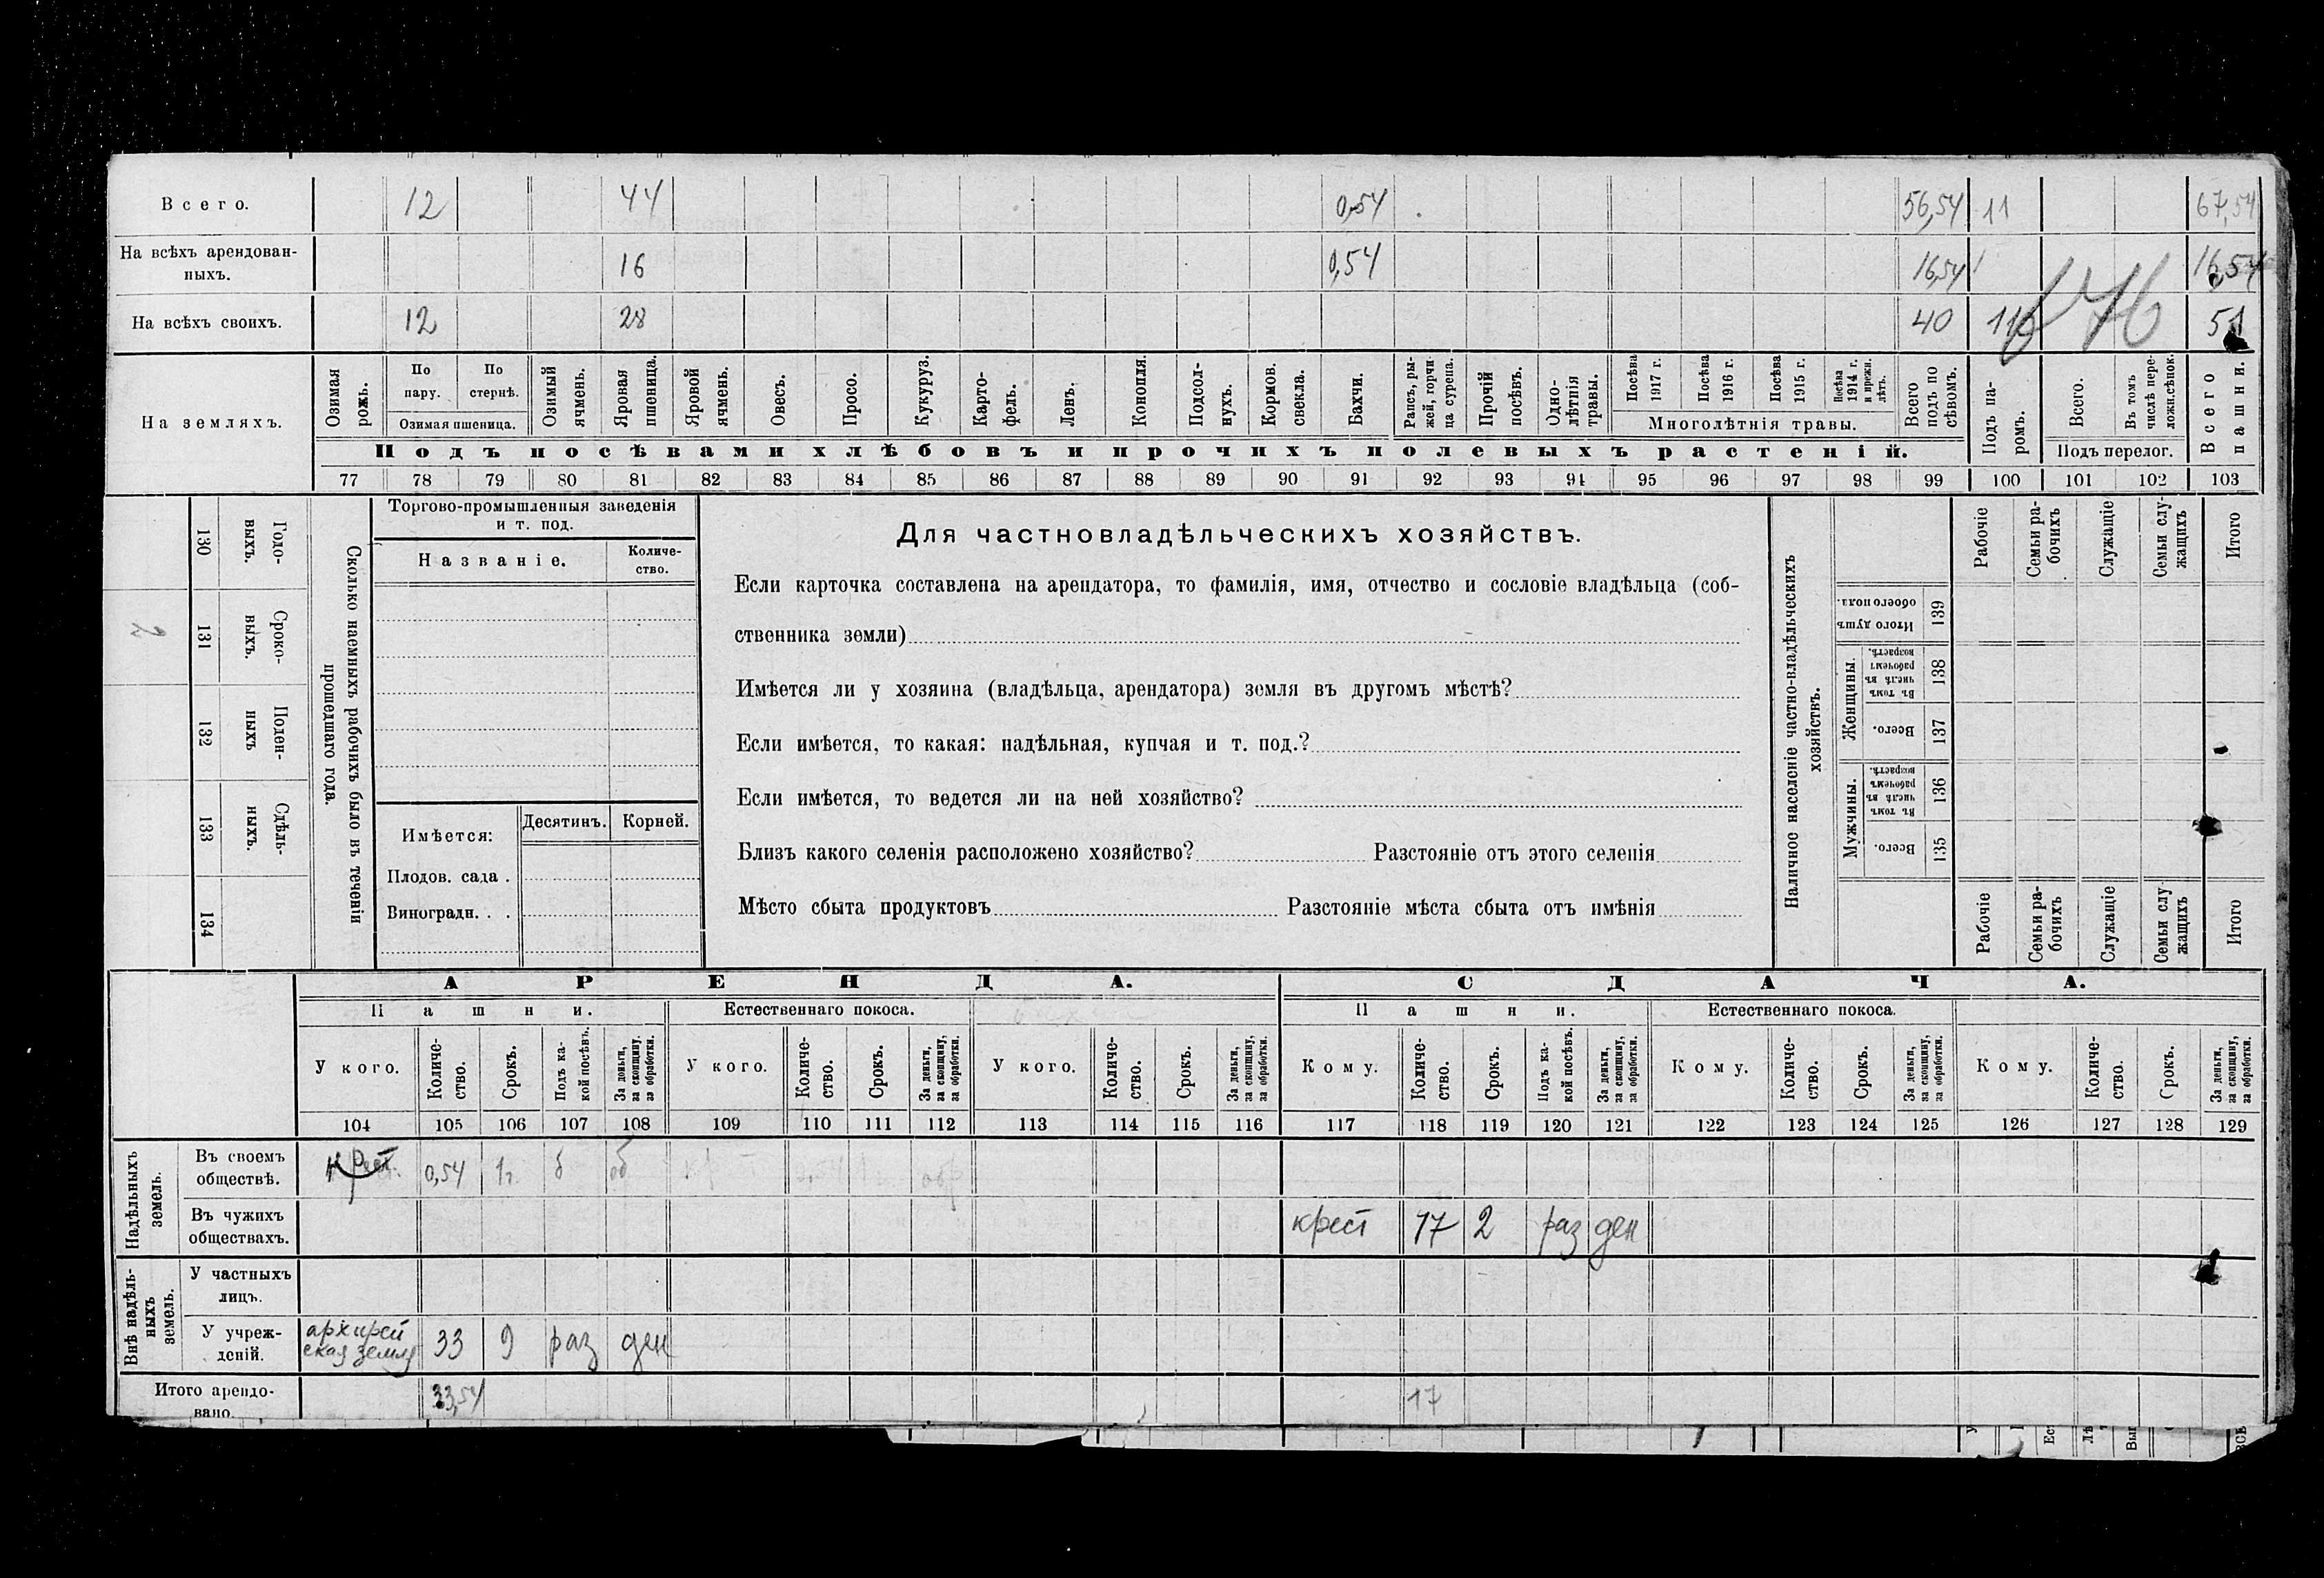 Всего. 12 44 0,54 56,54 11 67,54
На всѣхъ арендован-
ныхъ. 16 0,54 16,54 16,54
На всѣхъ своихъ. 12 28 40 11 76 51
На земляхъ.
Озимая рожь.
По пару.
По стернѣ.
Озимая пшеница.
Озимый ячмень.
Яровая пшеница.
Яровой ячмень.
Овесъ.
Просо.
Кукуруз.
Карто-
фель.
Ленъ.
Конопля.
Подсол-
нухъ.
Кормов. свекла.
Бахчи.
Рапсъ, ры-
жей, горчи
ца сурепа.
Прочій посѣвъ.
Одно-
лѣтнія
травы.
Посѣва 1917 г.
Посѣва 1916 г.
Посѣва 1915 г.
Посѣва 1914 г. и прежн. лѣтъ.
Многолѣтнія травы.
Всего подъ по
сѣвомъ.
Подъ посѣвами хлѣбовъ и прочихъ полевыхъ растеній.
Подъ па-
ромъ.
Всего.
Въ томъ числѣ пере-
ложн.сѣнок.
Подъ перелог.
Всего пашни.
77 78 79 80 81 82 83 84 85 86 87 88 89 90 91 92 93 94 95 96 97 98 99 100 101 102 103
Сколько наемныхъ рабочихъ было въ теченіи
прошедшаго года.
Годо-
выхъ.
130
Сроко-
выхъ.
131
Поден-
ныхъ
132
Сдѣль-
ныхъ.
133
134
Торгово-промышленныя заведенія
и т. под.
Названіе.
Количе-
ство.
Имѣется:
Десятинъ. Корней.
Плодов. сада .
Виноградн. . .
Для частновладѣльческихъ хозяйствъ.
Если карточка составлена на арендатора, то фамилія, имя, отчество и сословіе владѣльца (соб-
ственника земли)
Имѣется ли у хозяина (владѣльца, арендатора) земля въ другомъ мѣстѣ?
Если имѣется, то какая: надѣльная, купчая и т. под.?
Если имѣется, то ведется ли на ней хозяйство?
Близъ какого селенія расположено хозяйство? Разстояніе отъ этого селенія
Мѣсто сбыта продуктовъ Разстояніе мѣста сбыта отъ имѣнія
Наличное населеніе частно-владѣльческихъ
хозяйствъ.
Рабочіе
Семьи ра-
бочихъ
Служащіе
Семьи слу
жащихъ
Итого
Итого душъ
обоего пола.
139
Женщины.
Въ томъ числѣ въ рабочемъ возрастѣ.
138
Всего.
137
Мужчины.
Въ томъ числѣ въ рабочемъ возрастѣ.
136
Всего.
135
Рабочіе
Семьи ра-
бочихъ
Служащіе
Семьи слу
жащихъ
Итого
АРЕНДА. СДАЧА.
Пашни. Естественнаго покоса. Пашни. Естественнаго покоса.
У кого.
Количе-
ство.
Срокъ.
Подъ ка-
кой посѣвъ.
За деньги,
за скопщину,
за обработки.
У кого.
Количе-
ство.
Срокъ.
За деньги,
за скопщину,
за обработки.
У кого.
Количе-
ство.
Срокъ.
За деньги,
за скопщину,
за обработки.
Кому.
Количе-
ство.
Срокъ.
Подъ ка-
кой посѣвъ.
За деньги,
за скопщину,
за обработки.
Кому.
Количе-
ство.
Срокъ.
За деньги,
за скопщину,
за обработки.
Кому.
Количе-
ство.
Срокъ.
За деньги,
за скопщину,
за обработки.
104 105 106 107 108 109 110 111 112 113 114 115 116 117 118 119 120 121 122 123 124 125 126 127 128 129
Надѣльныхъ
земель.
Въ своемъ
обществѣ. крест. 0,54 1г. б об обр
Въ чужихъ
обществахъ. крест 17 2 раз ден
Внѣ надѣль-
ныхъ
земель.
У частныхъ
лицъ.
У учреж-
деній. архирей
ская земля 33 9 раз ден
Итого арендо-
вано. 33,54 17